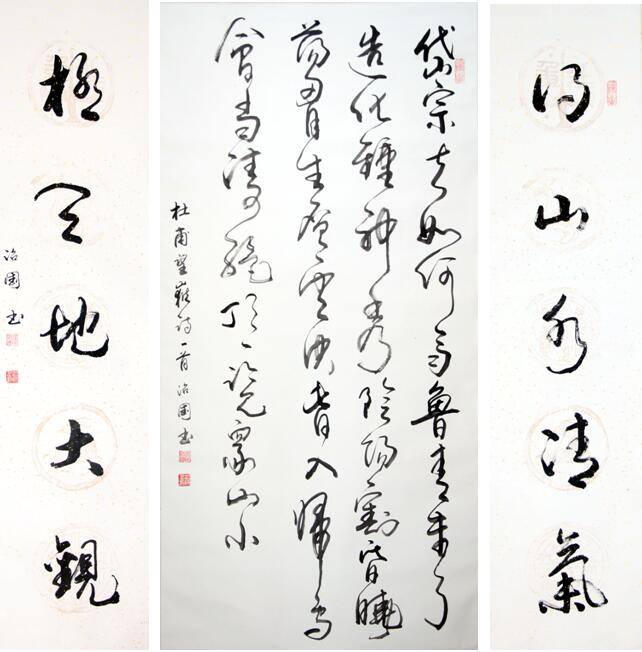 得山水清氣
岱宗夫如何齊魯青未了
造化鍾神秀陰陽割昏曉
蕩胸生層雲決眥入歸鳥
會當凌絕頂一覽眾山小
杜甫望嶽詩一首 治國書
極天地大觀
治國書